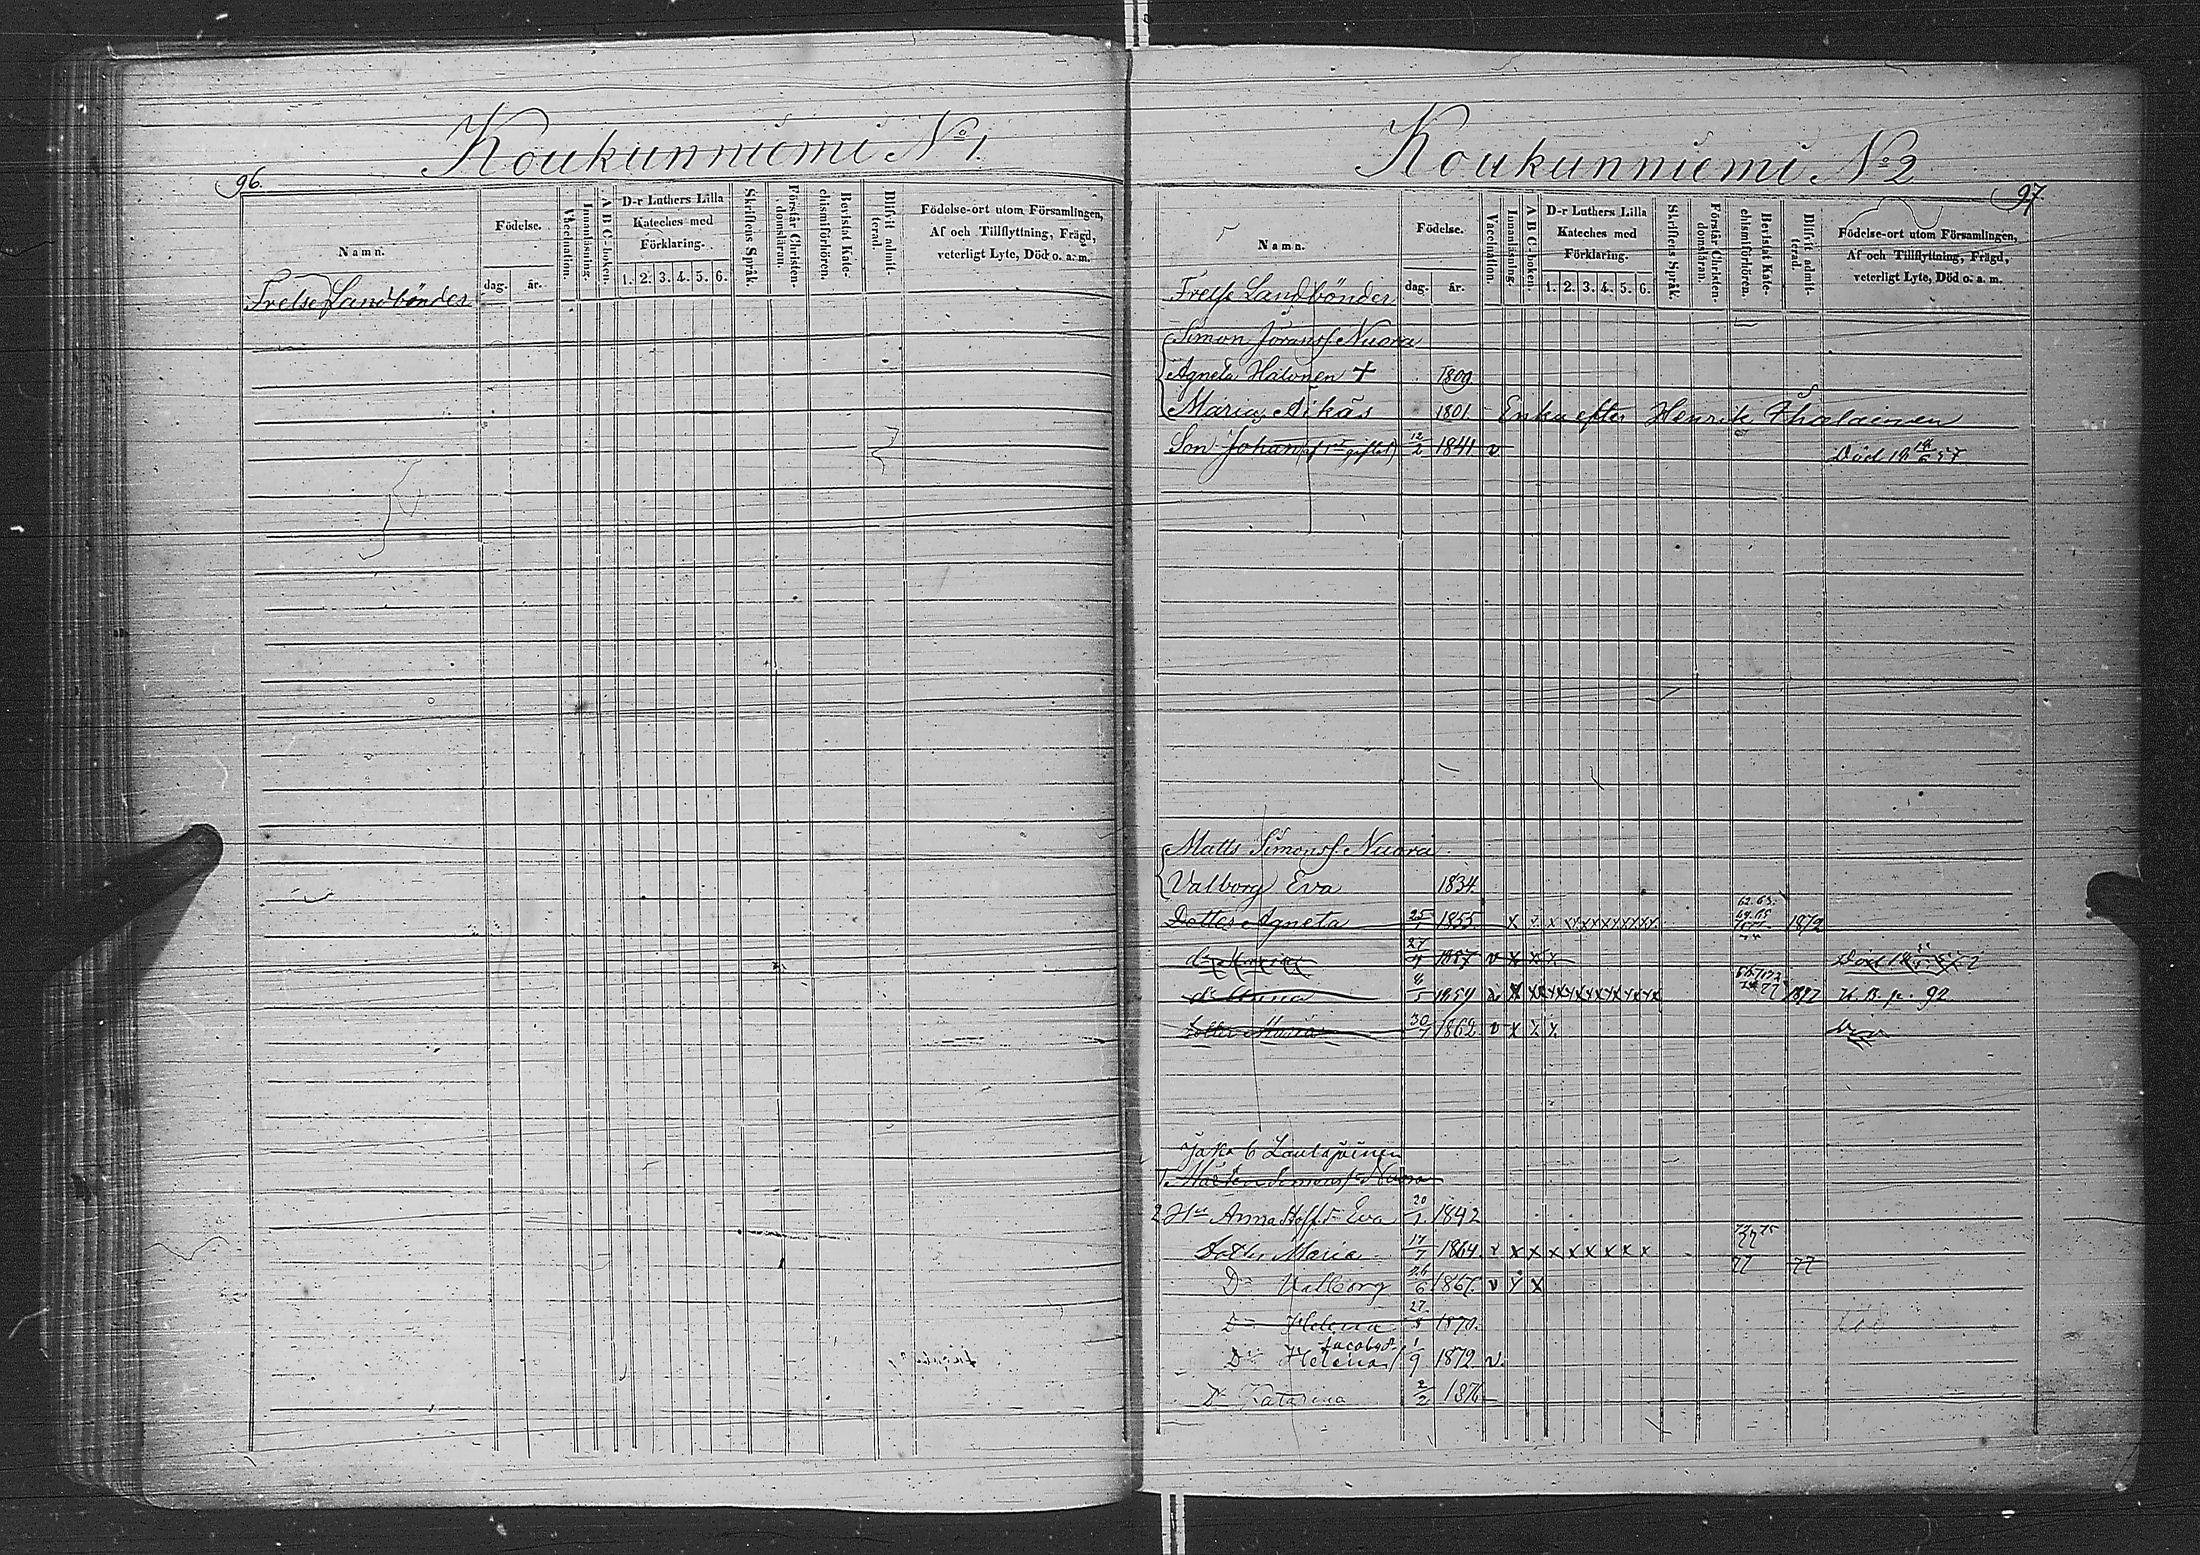 Koukunniemi No 1.
96.
Namn.
Födelse.
dag.
år.
Vaccination.
Innanläsning.
A B C-boken.
D-r Luthers Lilla Kateches med Förklaring.
1. 2. 3. 4. 5. 6.
Skriftens Språk.
Förstår Christendomsläran.
Bevistat Katechismiförhören.
Blifvit admitterad.
Födelse-ort utom Församlingen,
Af och Tillflyttning, Frägd,
veterligt Lyte, Död o. a. m.
Frelse Landbönder
Koukunniemi No 2
97
Namn.
Födelse.
dag.
år.
Vaccination.
Innanläsning.
A B C-boken.
D-r Luthers Lilla Kateches med Förklaring.
1. 2. 3. 4. 5. 6.
Skriftens Språk.
Förstår Christendomsläran.
Bevistat Katechismiförhören.
Blifvit admitterad.
Födelse-ort utom Församlingen,
Af och Tillflyttning, Frägd,
veterligt Lyte, Död o. a. m.
Frelse Landbönder
Simon Göranss. Nuora
Agneta Halonen + 1809
Maria Äikäs 1801 Enka efter Henrik Ihalainen
Son Johan (af 1sta giftet) 12/2 1841 v Död
Matts Simonss. Nuora
Valborg Eva 1834.
Dotter Agneta 25 1855 x x x x x x x x x 1872
dr Maria 27 1857 v x x x
dr Anna 1859 v x x x x x x x x x 1877 K. B. p. 92
Dotter Maria 30 1862 v x x x
Jakob Lautajäinen
1. Mårten Simonss. Nuora
2 Hu Anna Stoff.dr Eva 20/1 1842
Dotter Maria 17/7 1864 v x x x x x x x x 77 77
Dr Valborg 6 1867. v x x
Dr Helena 27 1870.
Dr Helena Jacobsd. 1/9 1872 v.
Dr Katarina 2/2 1876